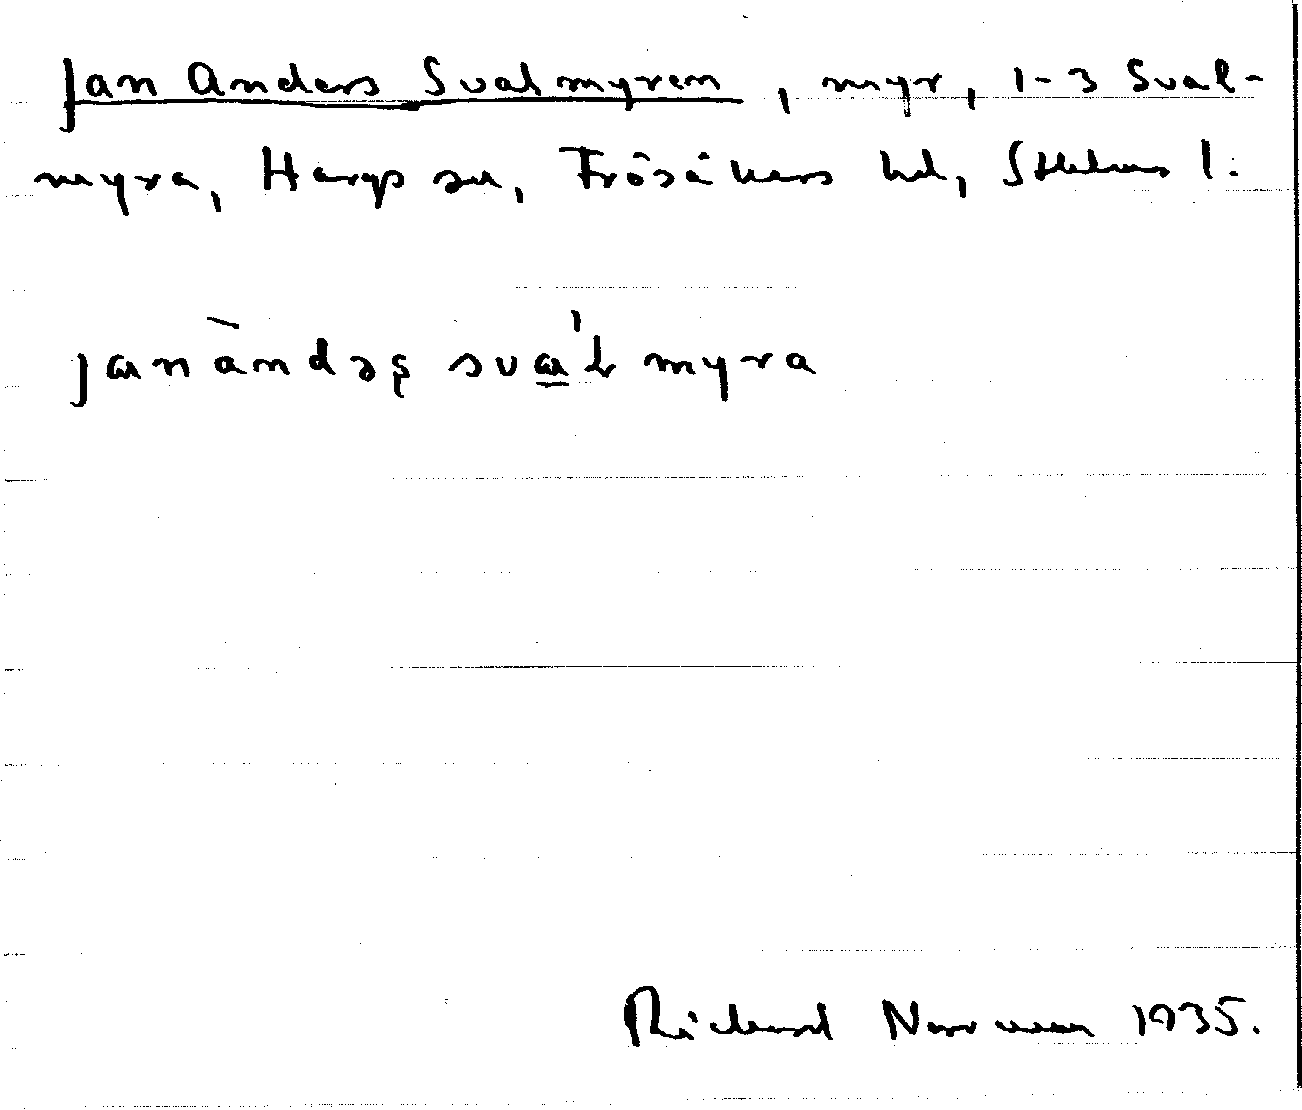 Jan Anders Svalmyren, myr, 1-3 Sval-
myra, Hargs sn, Frösåkers hd, Sthlms l.
janàndəş sva̲'ł myra
Richard Norrman 1935.